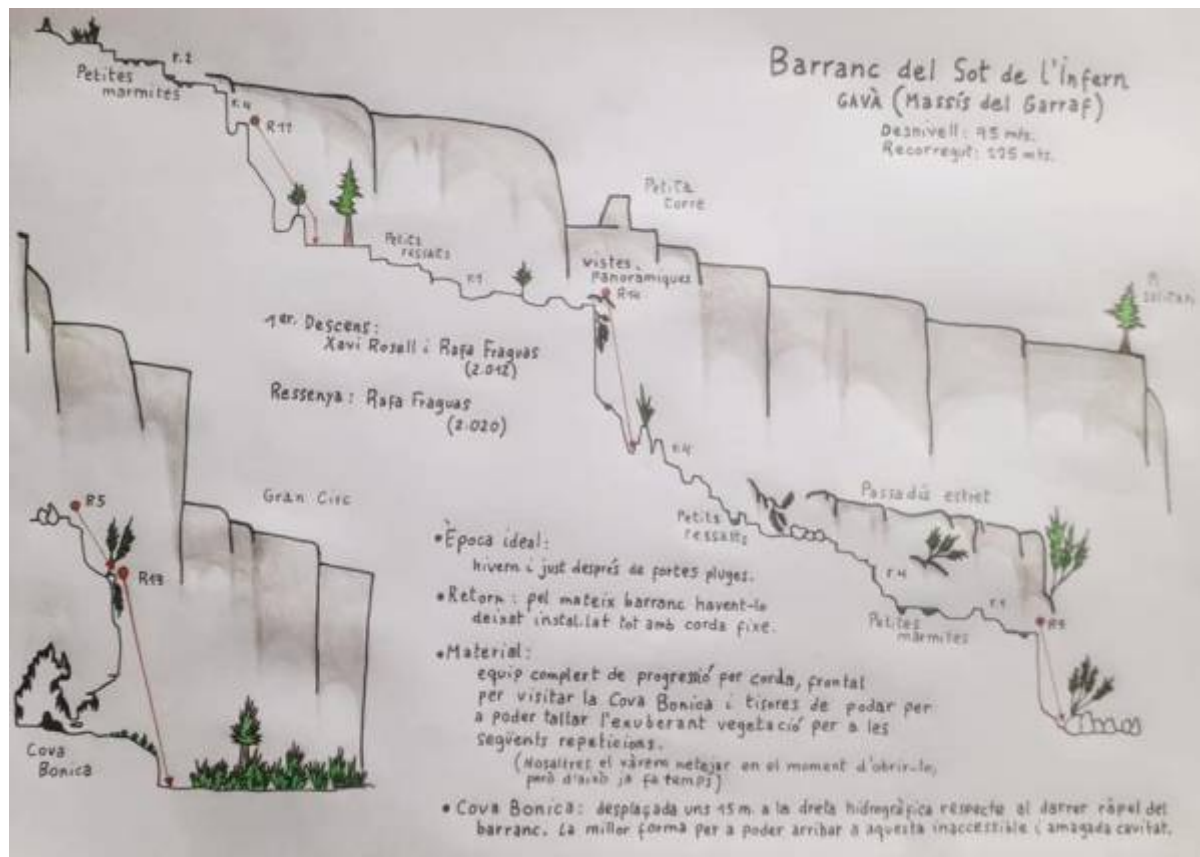 Barranc del Sot de l'Infern
GAVÀ (Massís del Garraf)
Desnivell: 95 mts.
Recorregut: 225 mts.
r.2
Petites
marmites
r.4
R11
Petits
ressalts
r.9
Petita
torre
vistes
Panoràmiques
R14
Pi
solitari
1er. Descens:
Xavi Rosell i Rafa Fraguas
(2.012)
Ressenya: Rafa Fraguas
(2.020)
r.4
Petits
ressalts
Passadís estret
r.4
Petites
màrmites
R9
R5
Gran Circ
R13
Cova
Bonica
•Època ideal:
hivern i just després de fortes pluges.
•Retorn: pel mateix barranc havent-lo
deixat instal.lat tot amb corda fixe.
•Material:
equip complert de progressió per corda, frontal
per visitar la Cova Bonica i tisores de podar per
a poder tallar l'exuberant vegetació per a les
següents repeticions.
(Nosaltres el vàrem netejar en el moment d'obrir-lo,
però d'això ja fa temps)
•Cova Bonica: desplaçada uns 15 m. a la dreta hidrogràfica respecte al darrer ràpel del
barranc. La millor forma per a poder arribar a aquesta inaccessible i amagada cavitat.